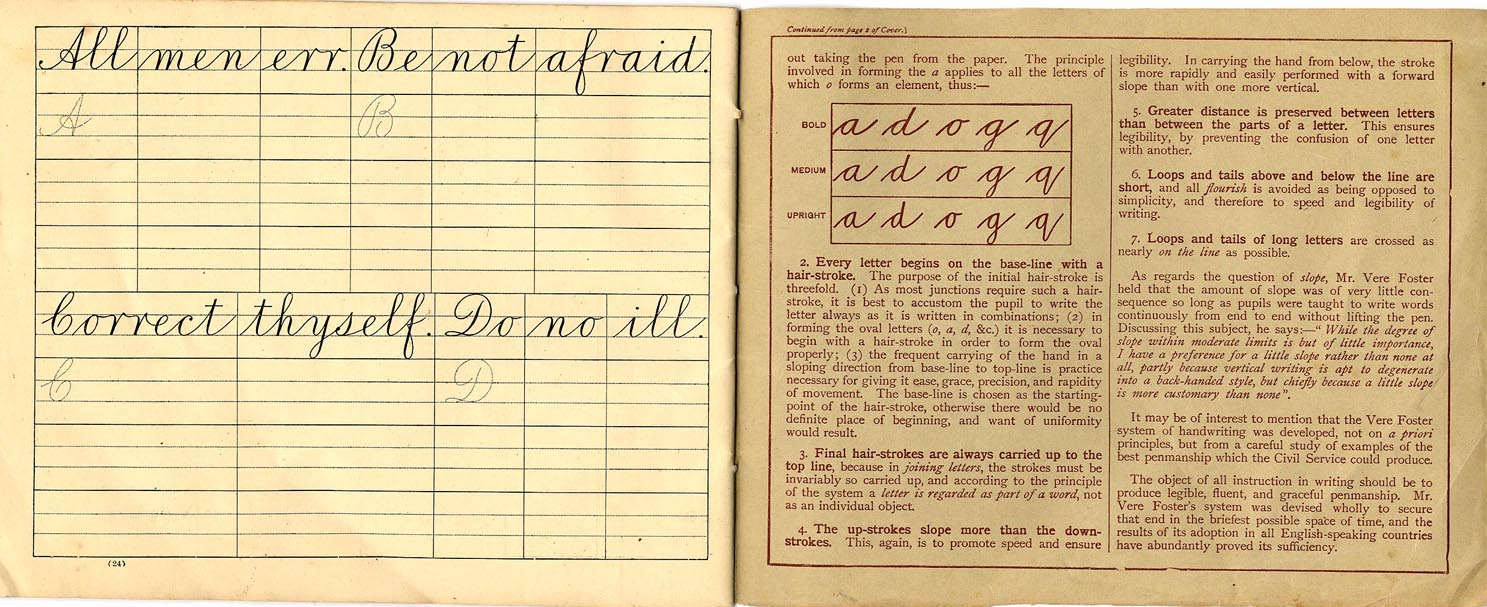 All men err. Be not afraid.
A B
Correct thyself. Do no ill.
C D
(24)
Continued from page 2 of Cover.]
out taking the pen from the paper. The principle
involved in forming the a applies to all the letters of
which o forms an element, thus:—
BOLD a d o g q
MEDIUM a d o g q
UPRIGHT a d o g q
2. Every letter begins on the base-line with a
hair-stroke. The purpose of the initial hair-stroke is
threefold. (1) As most junctions require such a hair-
stroke, it is best to accustom the pupil to write the
letter always as it is written in combinations; (2) in
forming the oval letters (o, a, d, &c.) it is necessary to
begin with a hair-stroke in order to form the oval
properly; (3) the frequent carrying of the hand in a
sloping direction from base-line to top-line is practice
necessary for giving it ease, grace, precision, and rapidity
of movement. The base-line is chosen as the starting-
point of the hair-stroke, otherwise there would be no
definite place of beginning, and want of uniformity
would result.
3. Final hair-strokes are always carried up to the
top line, because in joining letters, the strokes must be
invariably so carried up, and according to the principle
of the system a letter is regarded as part of a word, not
as an individual object.
4. The up-strokes slope more than the down-
strokes. This, again, is to promote speed and ensure
legibility. In carrying the hand from below, the stroke
is more rapidly and easily performed with a forward
slope than with one more vertical.
5. Greater distance is preserved between letters
than between the parts of a letter. This ensures
legibility, by preventing the confusion of one letter
with another.
6. Loops and tails above and below the line are
short, and all flourish is avoided as being opposed to
simplicity, and therefore to speed and legibility of
writing.
7. Loops and tails of long letters are crossed as
nearly on the line as possible.
As regards the question of slope, Mr. Vere Foster
held that the amount of slope was of very little con-
sequence so long as pupils were taught to write words
continuously from end to end without lifting the pen.
Discussing this subject, he says:—“ While the degree of
slope within moderate limits is but of little importance,
I have a preference for a little slope rather than none at
all, partly because vertical writing is apt to degenerate
into a back-handed style, but chiefly because a little slope
is more customary than none”.
It may be of interest to mention that the Vere Foster
system of handwriting was developed, not on a priori
principles, but from a careful study of examples of the
best penmanship which the Civil Service could produce.
The object of all instruction in writing should be to
produce legible, fluent, and graceful penmanship. Mr.
Vere Foster's system was devised wholly to secure
that end in the briefest possible space of time, and the
results of its adoption in all English-speaking countries
have abundantly proved its sufficiency.